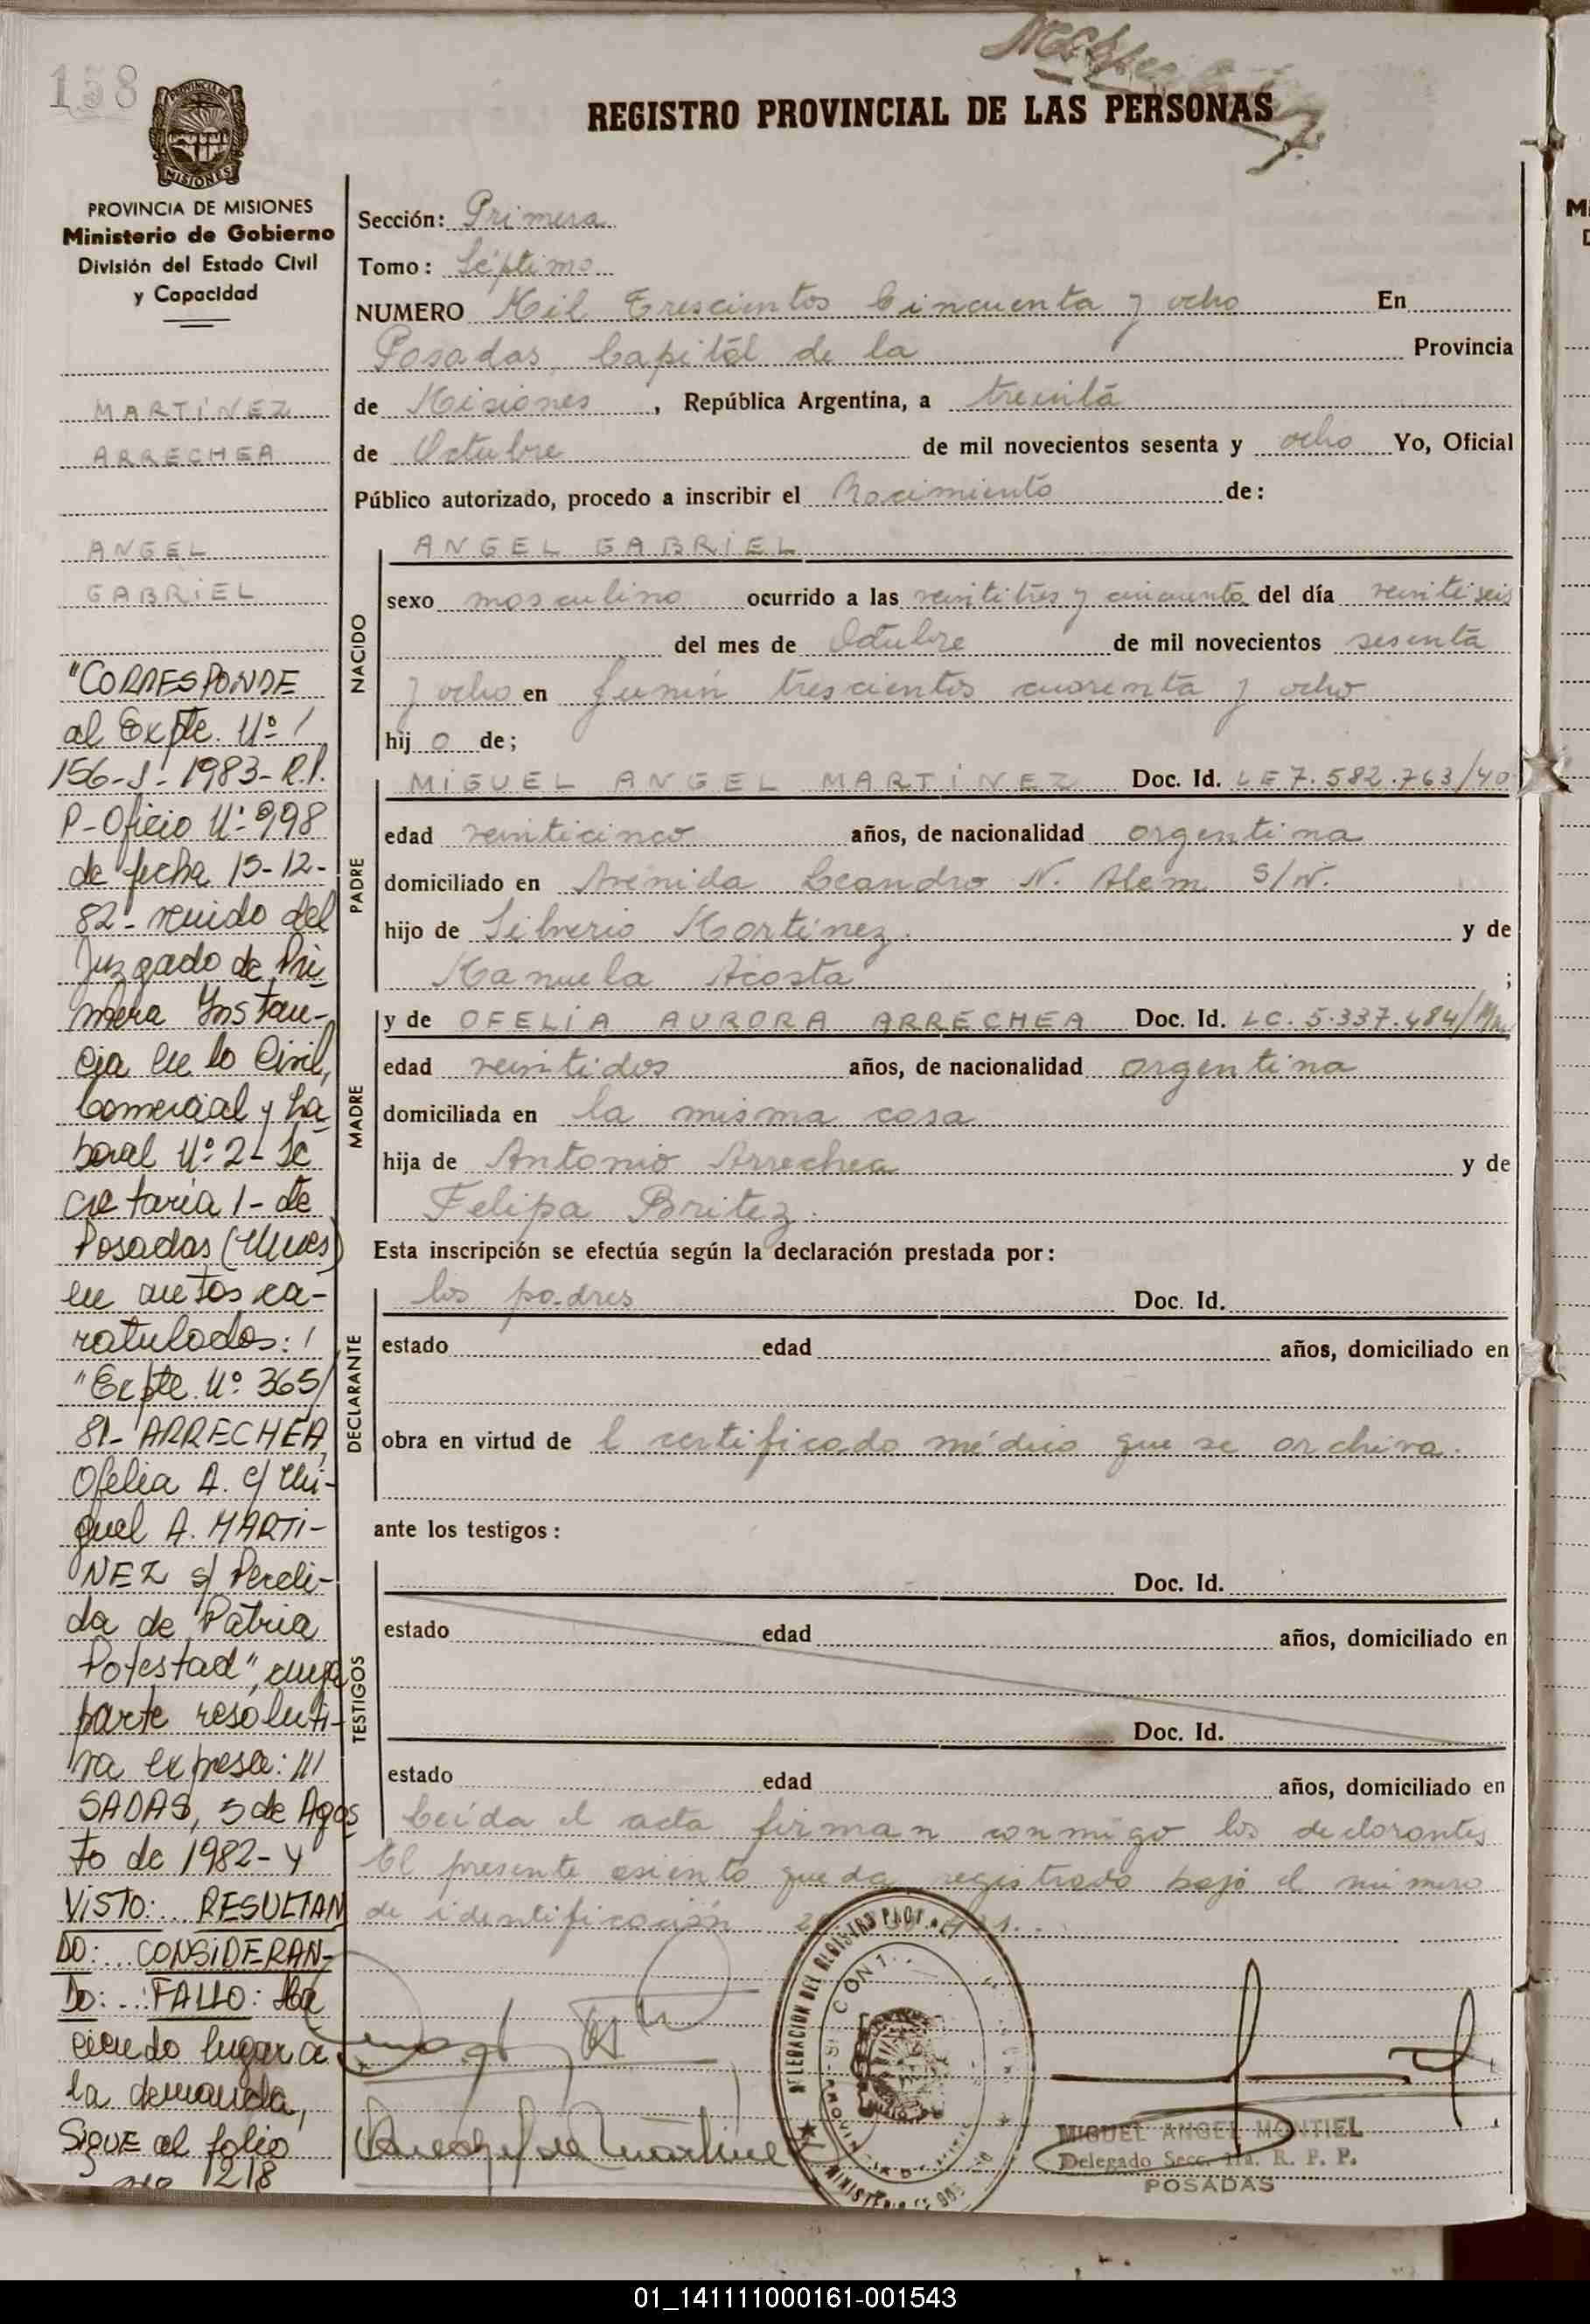 158
REGISTRO PROVINCIAL DE LAS PERSONAS
PROVINCIA DE
MISIONES
PROVINCIA DE MISIONES
Ministerio de Gobierno
División del Estado Civil
y Capacidad
MARTÍNEZ
ARRECHEA
ANGEL
GABRIEL
"CORRESPONDE
al Expte. Nº
156-J-1983-R.P.
P-Oficio Nº 998
de fecha 15-12-
82- venido del
Juzgado de Pri
mera Instan-
cia en lo Civil,
Comercial y La
boral Nº 2- Se
cretaría 1- de
Posadas (Mnes)
en autos ca-
ratulados:
"Expte. Nº 365/
81- ARRECHEA,
Ofelia A. c/ Mi-
guel A. MARTI-
NEZ s/ Perdi-
da de Patria
Potestad", cuya
parte resoluti-
va expresa: ///
SADAS, 5 de Agos
to de 1982- Y
VISTO:... RESULTAN
DO:... CONSIDERAN-
DO:... FALLO: Ha
ciendo lugar a
la demanda,
SIGUE al folio
nº 1218
Sección: Primera
Tomo: Séptimo
NUMERO Mil Trescientos Cincuenta y ocho En
Posadas, Capital de la Provincia
de Misiones, República Argentina, a treinta
de Octubre de mil novecientos sesenta y ocho Yo, Oficial
Público autorizado, procedo a inscribir el Nacimiento de:
NACIDO
ANGEL GABRIEL
sexo masculino ocurrido a las veintitres y cincuenta del día veintiseis
del mes de Octubre de mil novecientos sesenta
y ocho en Junín trescientos cuarenta y ocho
hij o de;
PADRE
MIGUEL ANGEL MARTÍNEZ Doc. Id. LE 7.582.763/40
edad veinticinco años, de nacionalidad argentina
domiciliado en Avenida Leandro N. Alem S/N.
hijo de Silverio Martínez. y de
Manuela Acosta ;
MADRE
y de OFELIA AURORA ARRECHEA Doc. Id. LC. 5.337.484/
edad veintidos años, de nacionalidad argentina
domiciliada en la misma casa
hija de Antonio Arrechea y de
Felipa Britez.
Esta inscripción se efectúa según la declaración prestada por:
DECLARANTE
los padres Doc. Id.
estado edad años, domiciliado en
obra en virtud de l certificado médico que se archiva.
ante los testigos:
TESTIGOS
Doc. Id.
estado edad años, domiciliado en
Doc. Id.
estado edad años, domiciliado en
Leída el acta firman conmigo los declarantes
El presente asiento queda registrado bajo el número
de identificación
DELEGACION DEL REGISTRO
MIGUEL ANGEL MONTIEL
Delegado Secc. 1ra. R. P. P.
POSADAS
01_141111000161-001543